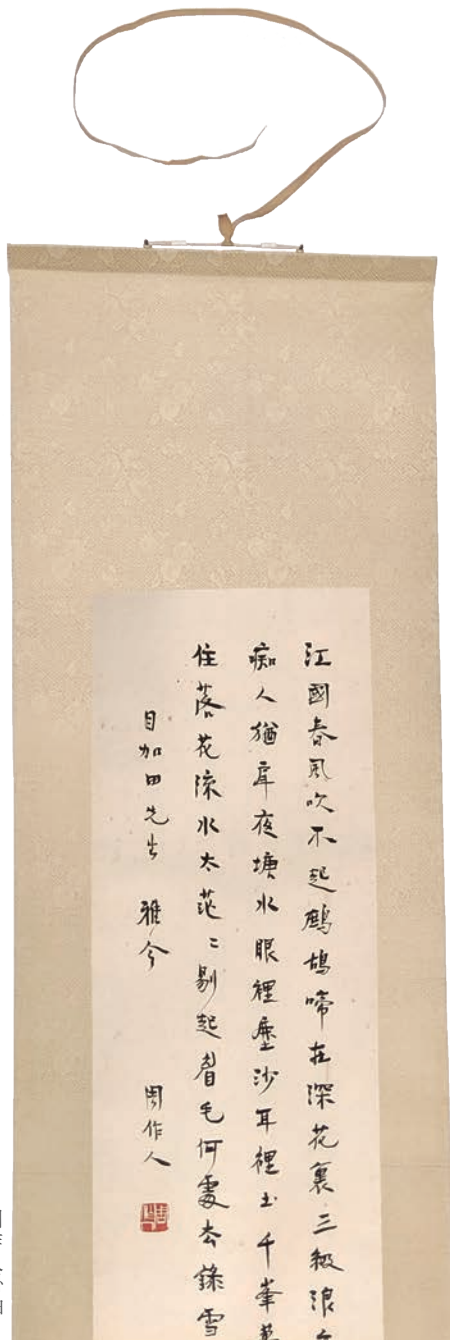 江國春風吹不起鷓鴣啼在深花裏三級浪
痴人猶戽夜塘水眼裡塵沙耳裡土千峯
住落花流水太茫〻剔起眉毛何處去錄雪
目加田先生 雅令
周作人